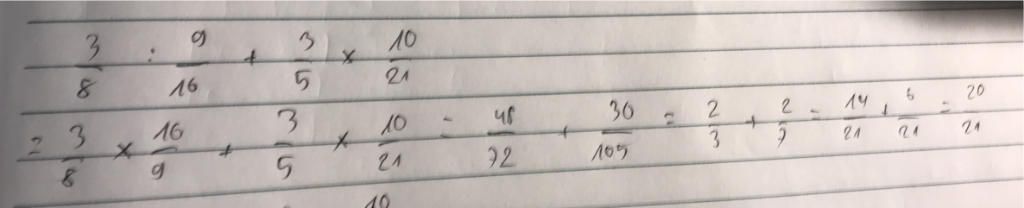 3/8 : 9/16 + 3/5 × 10/21
= 3/8 × 16/9 + 3/5 × 10/21 = 48/72 + 30/105 = 2/3 + 2/7 = 14/21 + 6/21 = 20/21
10